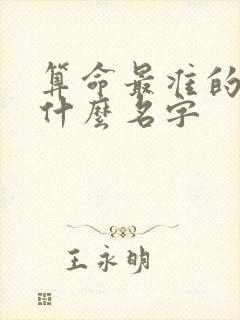 算命最准的
什麼名字
王永明